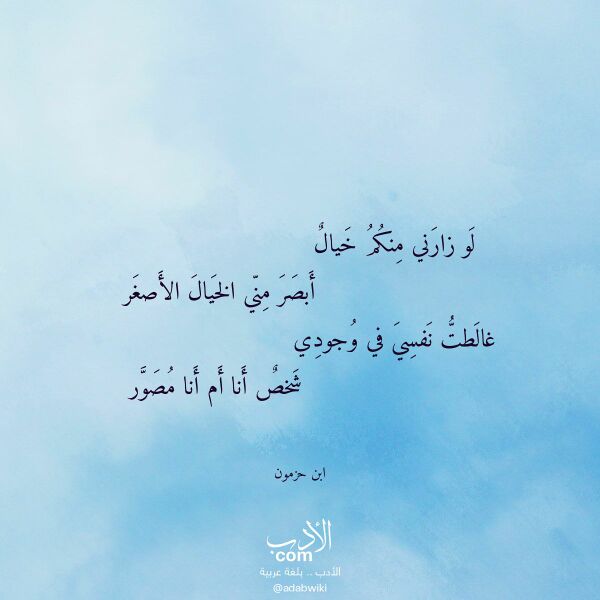 لَو زارَني مِنكُمُ خَيالٌ
أَبصَرَ مِنّي الخَيالَ الأَصغَر
غالَطتُّ نَفسِيَ في وُجودِي
شَخصٌ أَنا أَم أَنا مُصَوَّر
ابن حزمون
الأدب
com
الأدب .. بلغة عربية
@adabwiki